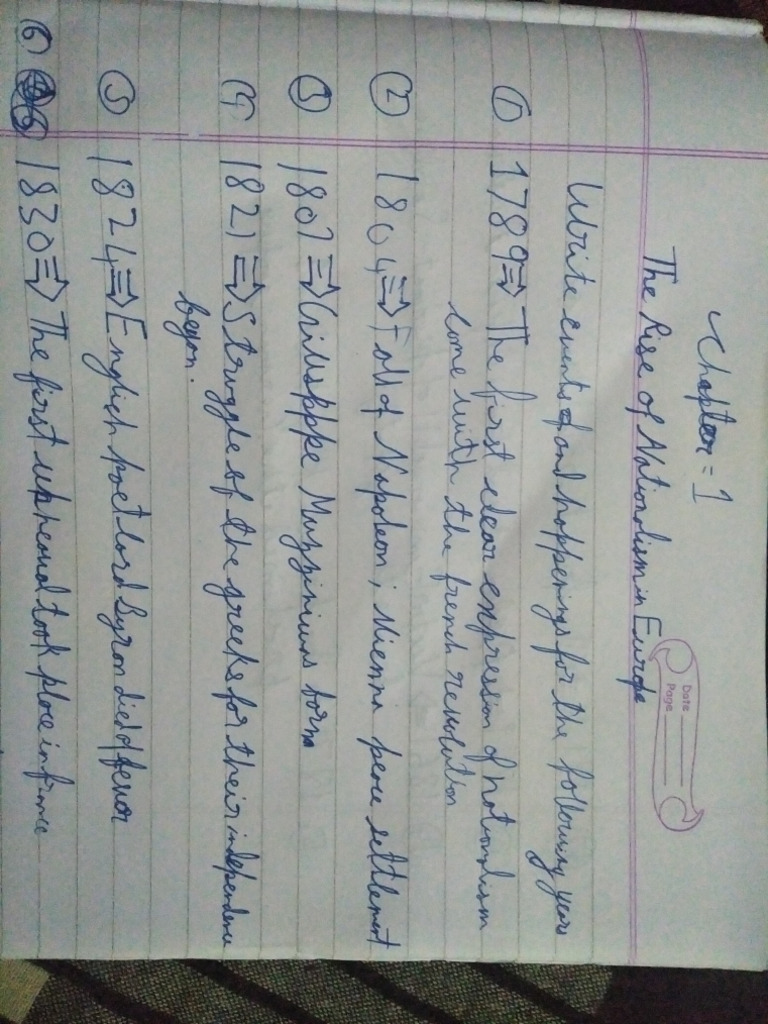 Chapter = 1
Date
Page
The Rise of Nationalism in Europe
Write events of and happenings for the following years
① 1789 ⇒ The first clear expression of nationalism
come with the french revolution
② 1804 ⇒ Fall of Napoleon; Vienna peace settlement
③ 1807 ⇒ Giuseppe Mazzini was born
④ 1821 ⇒ Struggle of the greeks for their independence
began.
⑤ 1824 ⇒ English poet lord Byron died of fever
⑥ 1830 ⇒ The first upheaval took place in france